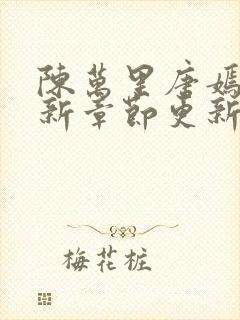 陳萬里唐嫣
新章節更新
梅花桩